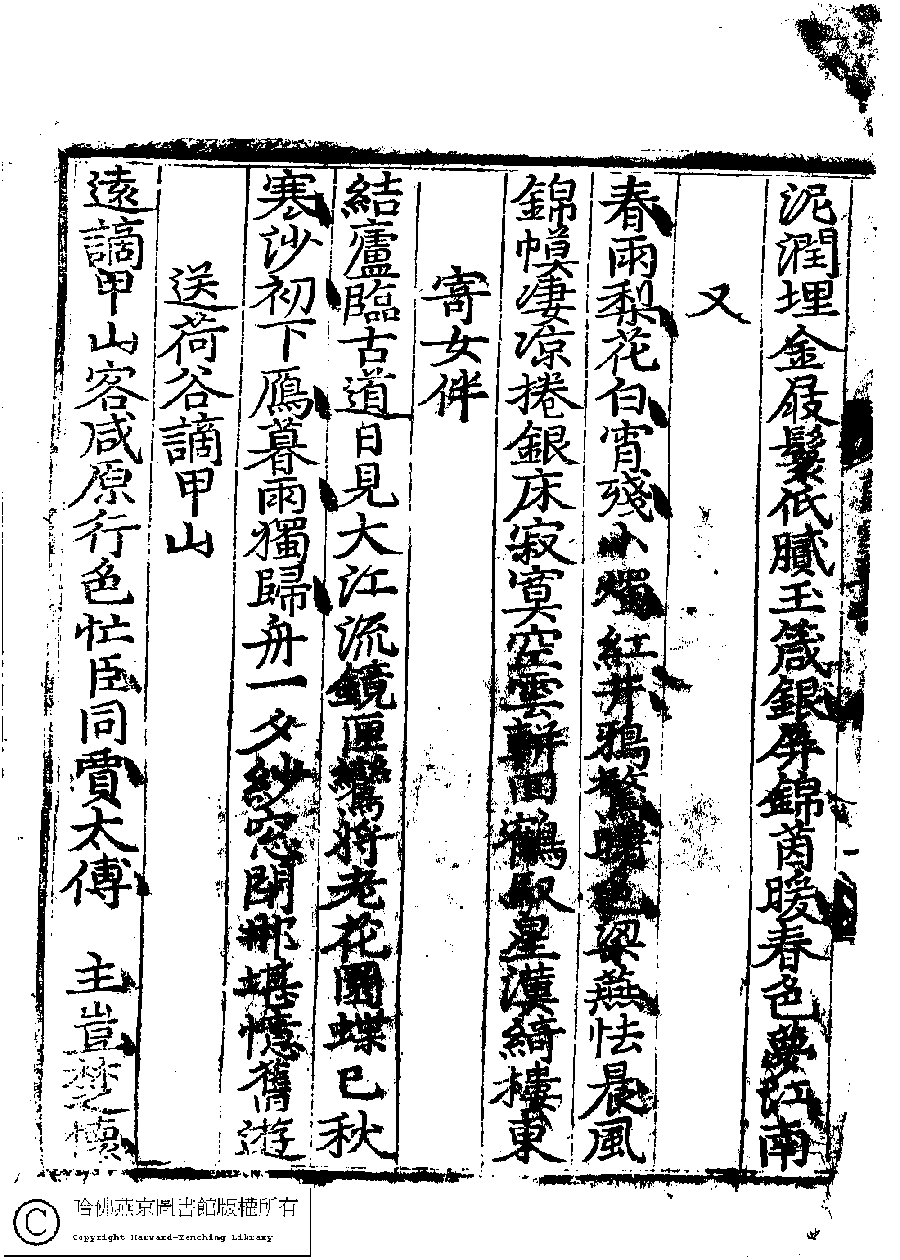 泥潤埋金屐鬟低膩玉箴銀屏錦茵暖春色夢江南
又
春雨梨花白宵殘小燭紅井鴉驚曙色梁燕怯晨風
錦幙凄凉捲銀床寂寞空雲軿回鶴馭星漢綺樓東
寄女伴
結廬臨古道日見大江流鏡匣鸞將老花園蝶已秋
寒沙初下鴈暮雨獨歸舟一夕紗窓閉那堪憶舊遊
送荷谷謫甲山
遠謫甲山客咸原行色忙臣同賈太傅 主豈楚懷
哈佛燕京圖書館版權所有
Copyright Harvard-Yenching Library